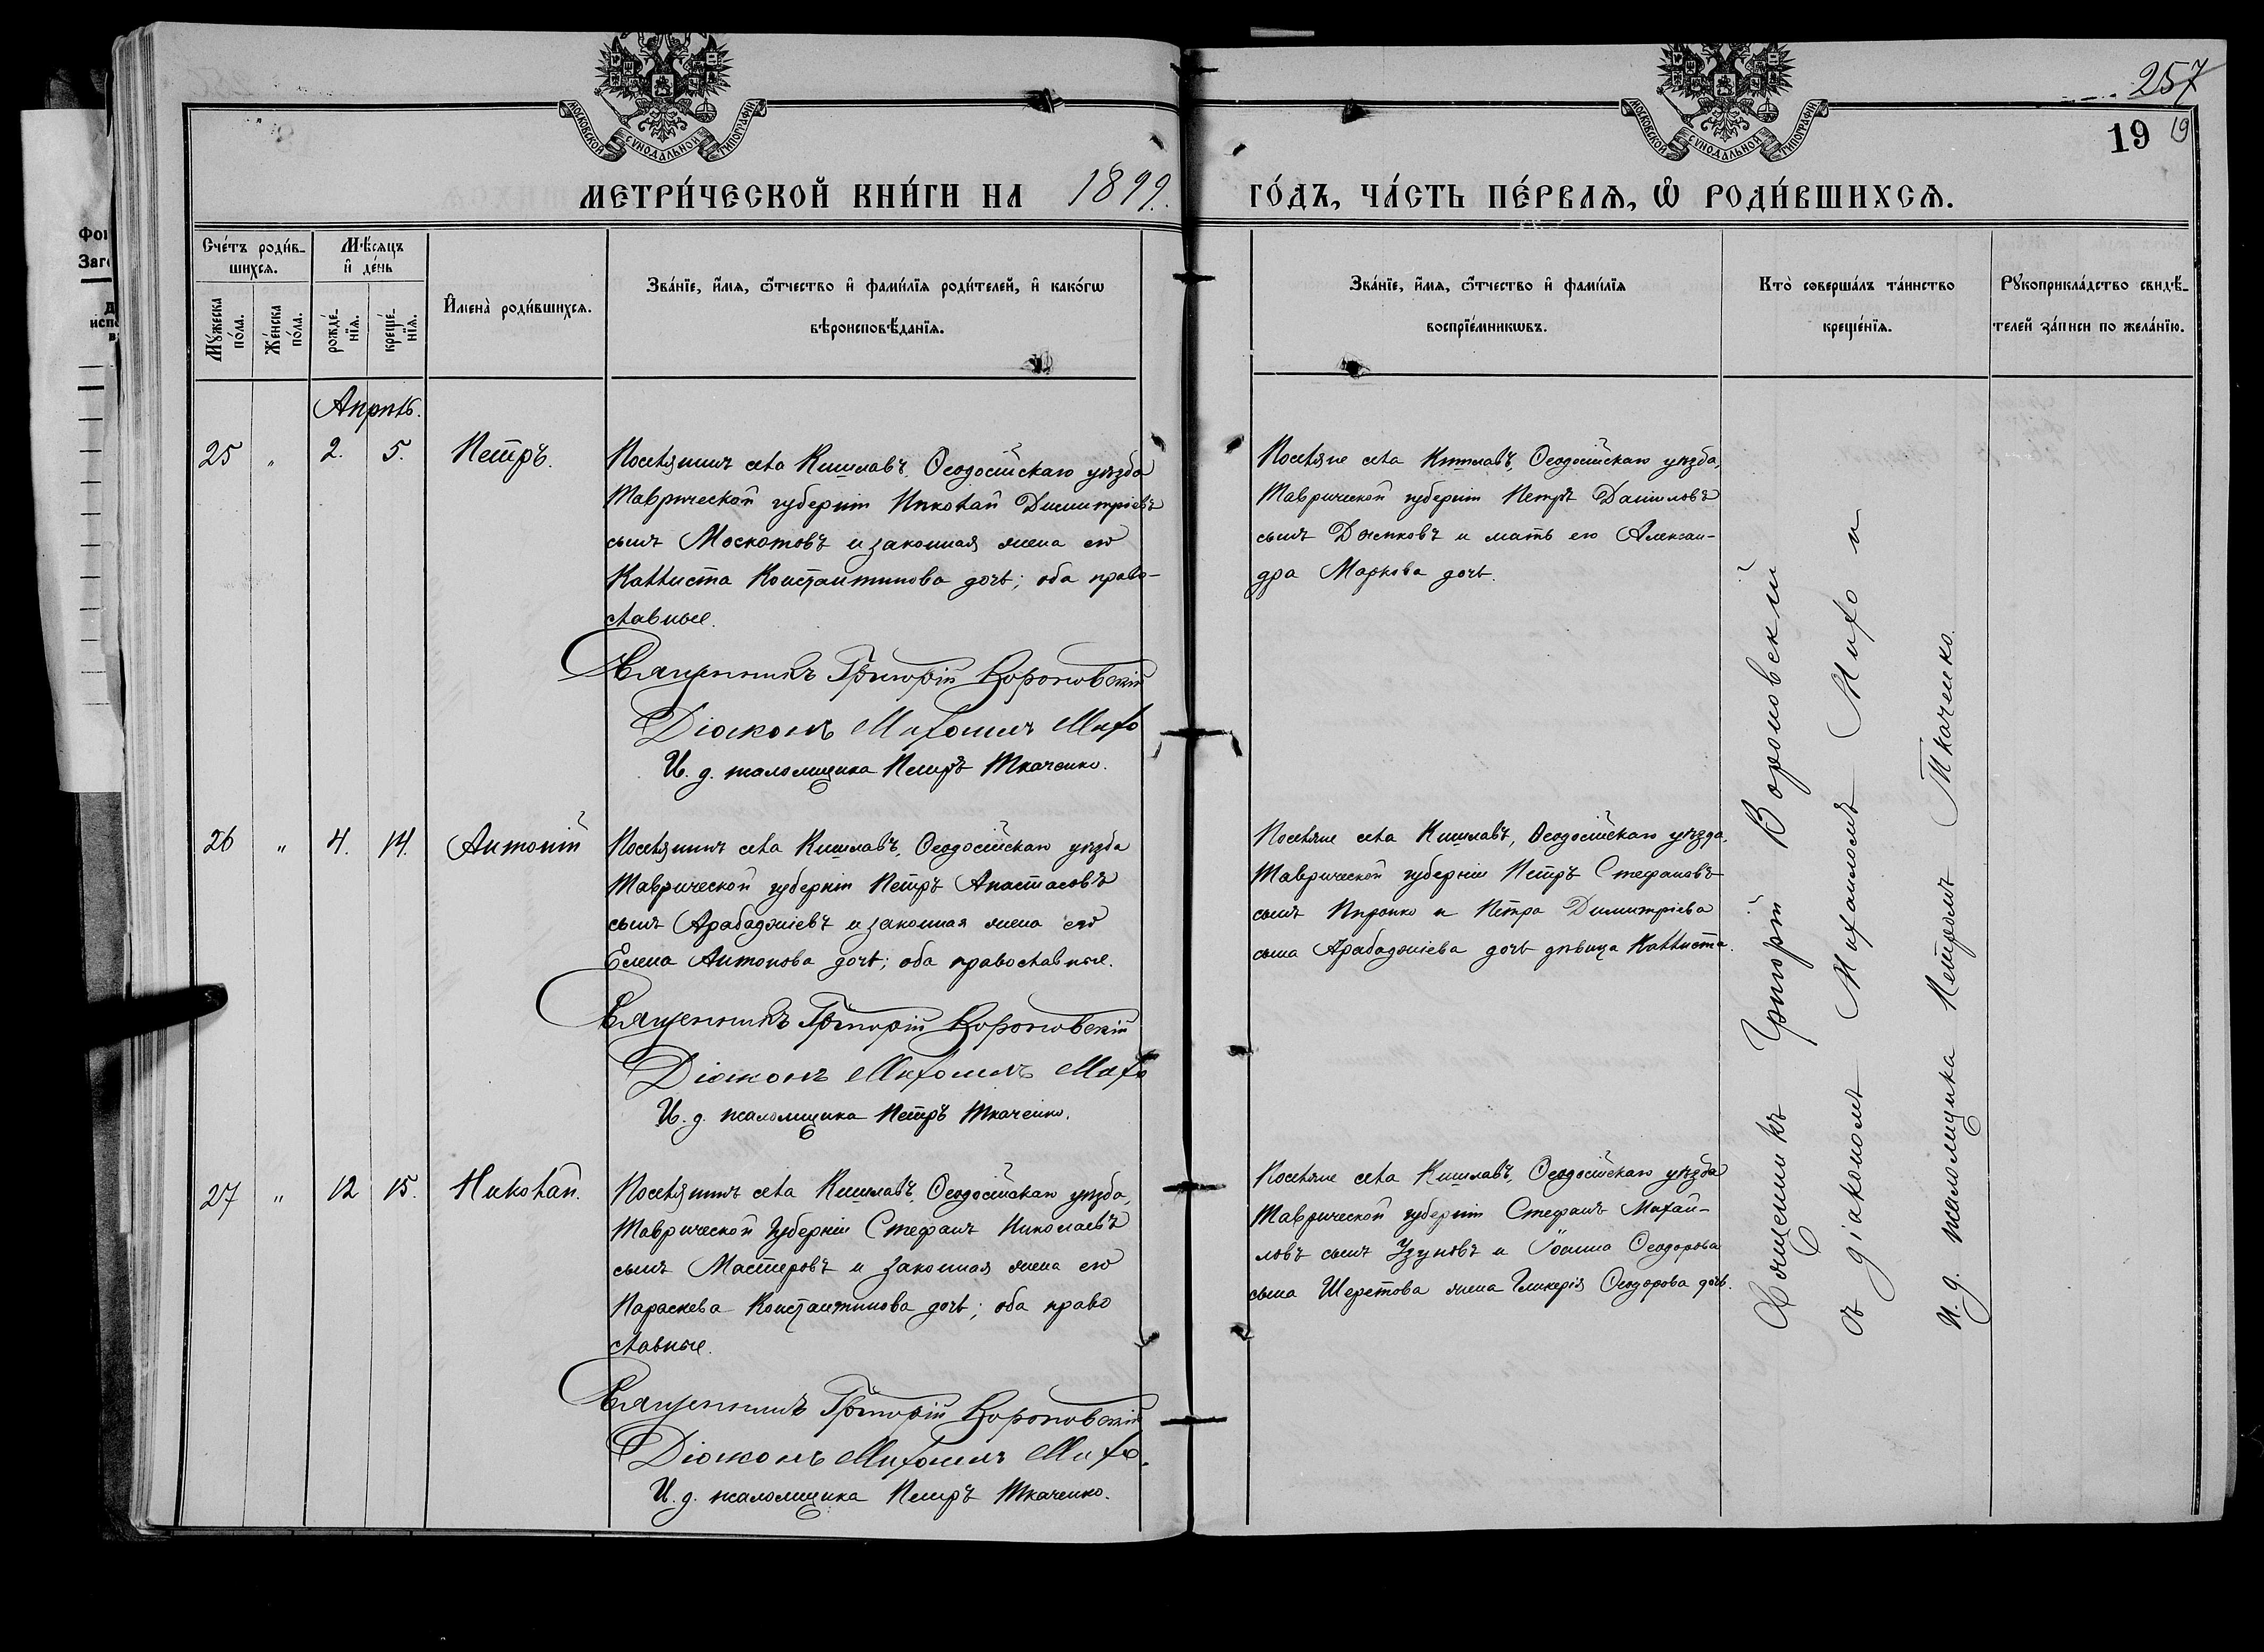 257
19 19
МОСКОВСКОЙ СУНОДАЛЬНОЙ ТИПОГРАФІИ
МОСКОВСКОЙ СУНОДАЛЬНОЙ ТИПОГРАФІИ
МЕТРИ́ЧЕСКОЙ КНИ́ГИ НА 1899. ГО́ДЪ, ЧА́СТЬ ПЕ́РВАѦ, Ѽ РОДИ́ВШИХСѦ.
Сче́тъ роди́в-
шихсѧ.
Мꙋ́жеска по́ла.
Же́нска по́ла.
Мѣ́сѧцъ и҆ де́нь
рожде́-нїѧ.
креще́-нїѧ.
И҆мена̀ роди́вшихсѧ.
Зва́нїе, и҆́мѧ, ѻ҆́тчество и҆ фами́лїѧ роди́телей, и҆ како́гѡ
вѣроисповѣ́данїѧ.
Зва́нїе, и҆́мѧ, ѻ҆́тчество и҆ фами́лїѧ
воспрїе́мникѡвъ.
Кто̀ соверша́лъ та́инство
креще́нїѧ.
Рꙋкоприкла́дство свидѣ́-
телей за́писи по жела́нїю.
Апрѣль.
25 " 2. 5. Петръ.
Поселянинъ села Кишлавъ, Ѳеодосійскаго уѣзда
Таврической губерніи Николай Димитріевъ
сынъ Москотовъ и законная жена его
Каллиста Константинова дочь; оба право-
славные.
Священникъ Григорій Вороновскій
Діаконъ Михаилъ Михо
И. д. псаломщика Петръ Ткаченко.
Поселяне села Кишлавъ, Ѳеодосійскаго уѣзда,
Таврической губерніи Петръ Даниловъ
сынъ Дынковъ и мать его Алексан-
дра Маркова дочь.
26 " 4. 14. Антоній
Поселянинъ села Кишлавъ, Ѳеодосійскаго уѣзда
Таврической губерніи Петръ Анастасовъ
сынъ Арабаджіевъ и законная жена его
Елена Антонова дочь; оба православные.
Священникъ Григорій Вороновскій
Діаконъ Михаилъ Михо
И. д. псаломщика Петръ Ткаченко.
Поселяне села Кишлавъ, Ѳеодосійскаго уѣзда,
Таврической губерніи Петръ Стефановъ
сынъ Пиронко и Петра Димитріева
сына Арабаджіева дочь дѣвица Каллиста.
27 " 12 15. Николай.
Поселянинъ села Кишлавъ, Ѳеодосійскаго уѣзда,
Таврической губерніи Стефанъ Николаевъ
сынъ Мастеровъ и законная жена его
Параскева Константинова дочь; оба право
славные.
Священникъ Григорій Вороновскій
Діаконъ Михаилъ Михо.
И. д. псаломщика Петръ Ткаченко.
Поселяне села Кишлавъ, Ѳеодосійскаго уѣзда
Таврической губерніи Стефанъ Михай-
ловъ сынъ Узуновъ и Іоанна Ѳеодорова
сына Шеретова жена Гликерія Ѳеодорова дочь.
Священникъ Григорій Вороновскій
съ діакономъ Михаиломъ Михо и
и. д. псаломщика Петромъ Ткаченко.